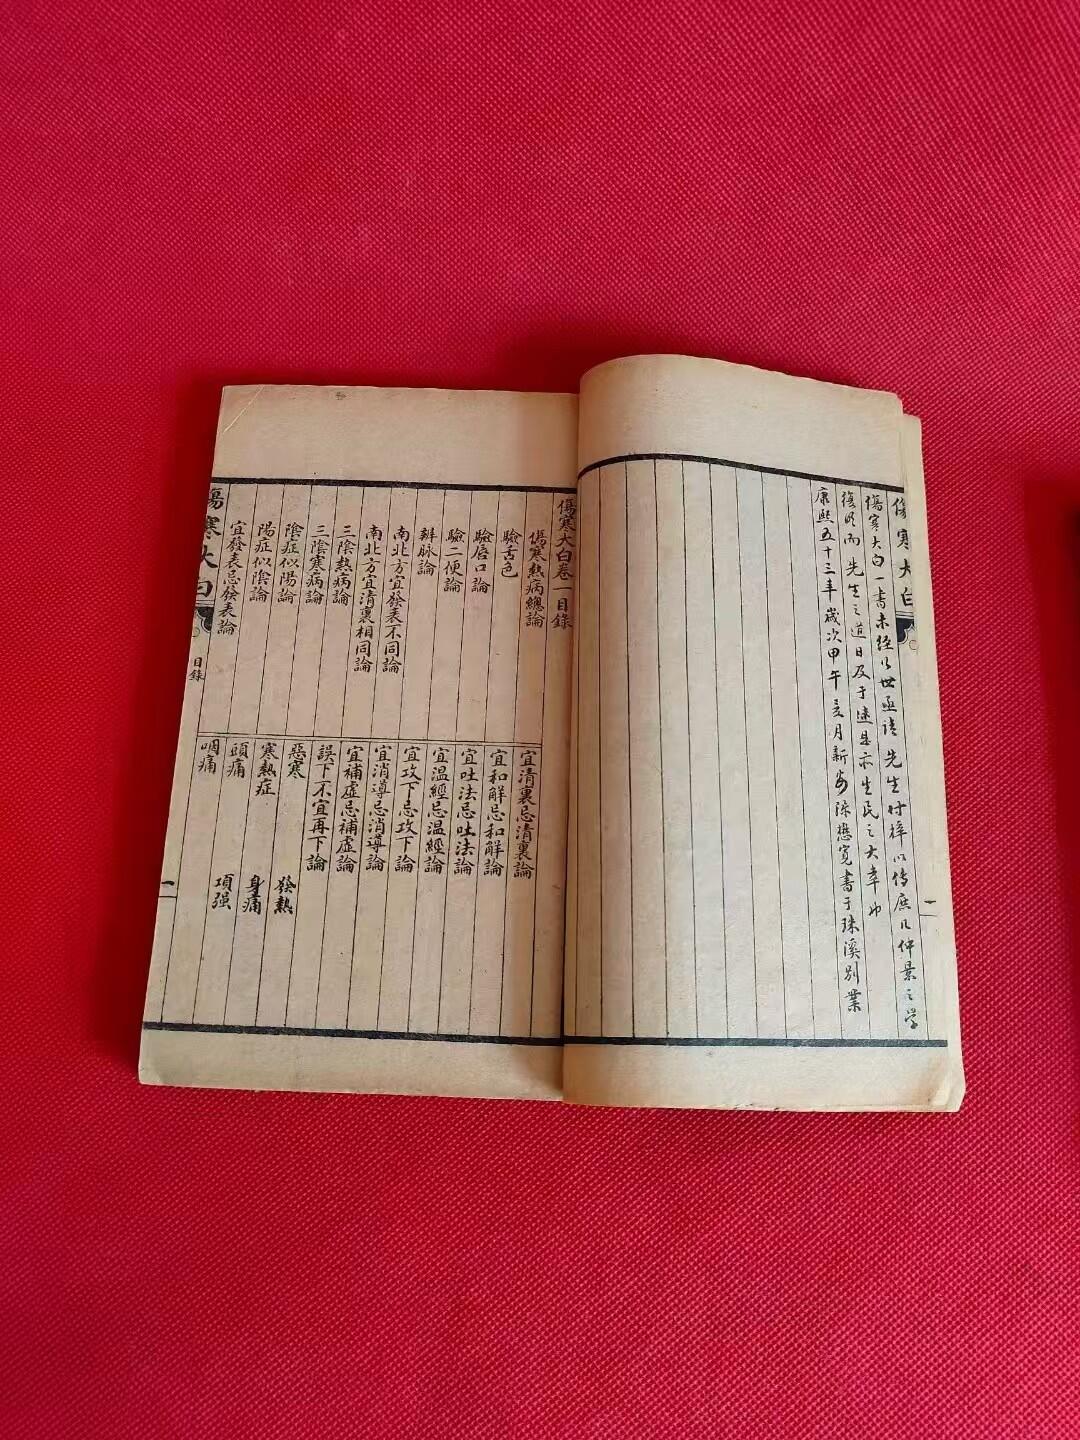 傷寒大白
傷寒大白一書未經問世亟請先生付梓以傳庶几仲景之學
復明而先生之道日及于遠是亦生民之大幸也
康熙五十三年歲次甲午
月新安陳懋寬書于珠溪別業
一
傷寒大白卷一目錄
傷寒熱病總論
驗舌色
驗唇口論
驗二便論
辨脉論
南北方宜發表不同論
南北方宜清裏相同論
三陰熱病論
三陰寒病論
陰症似陽論
陽症似陰論
宜發表忌發表論
宜清裏忌清裏論
宜和解忌和解論
宜吐法忌吐法論
宜温經忌温經論
宜攻下忌攻下論
宜消導忌消導論
宜補虛忌補虛論
誤下不宜再下論
惡寒 發熱
寒熱症 身痛
頭痛 項强
咽痛
傷寒大白
目錄
一